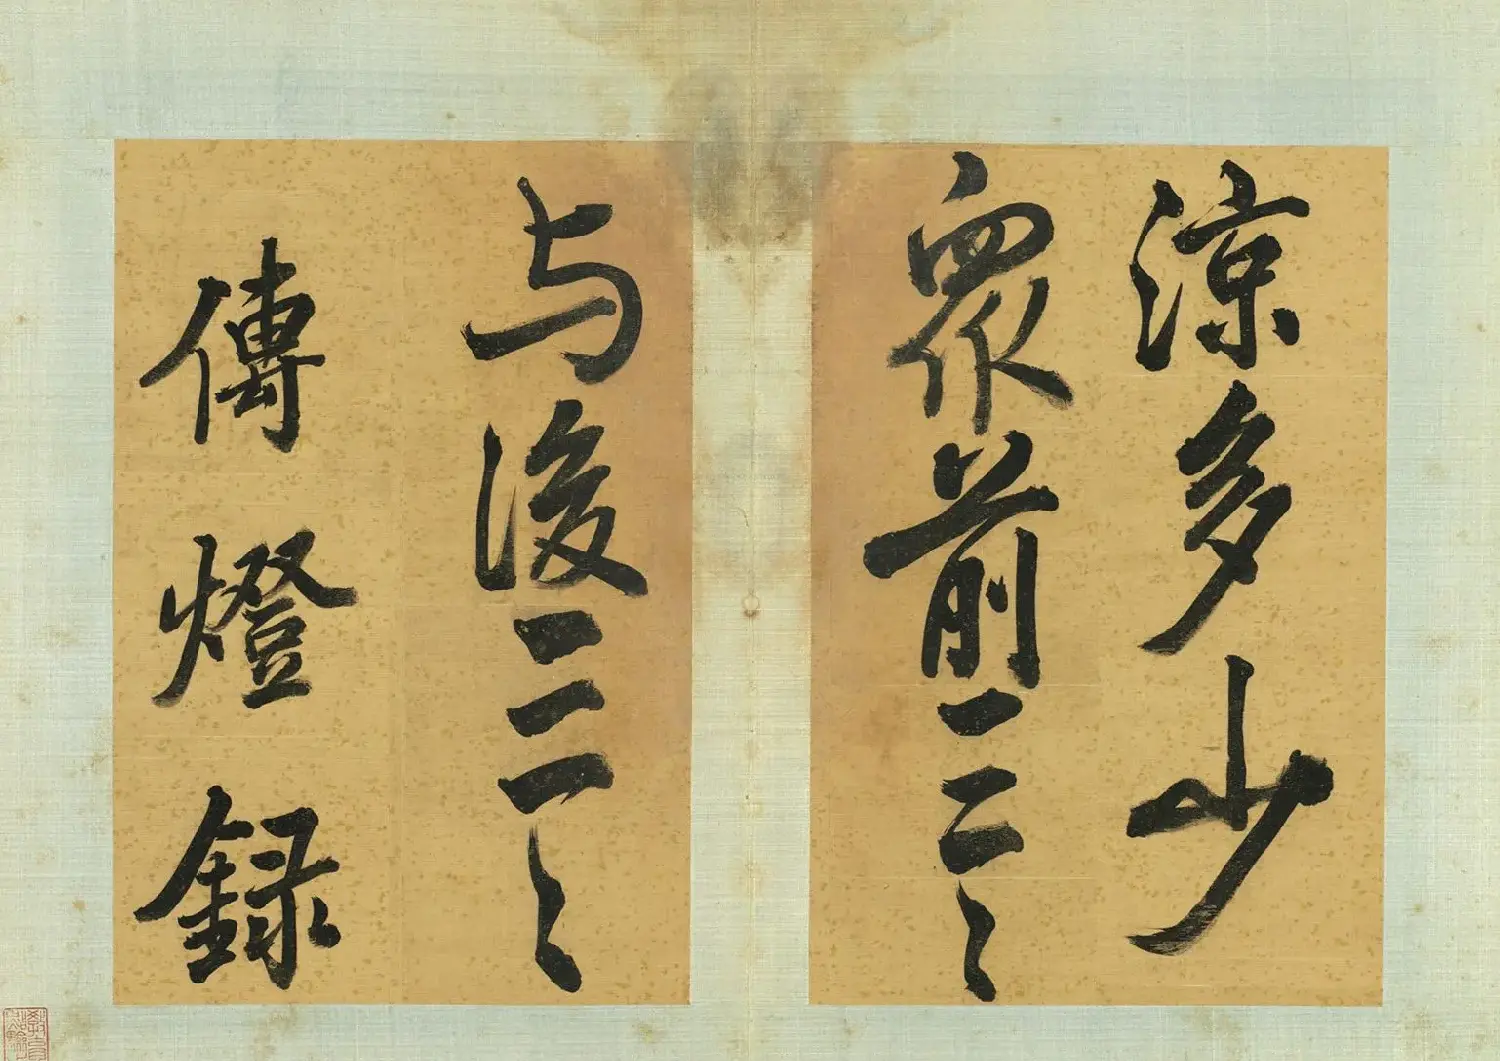 涼多少
眾前三三
与後三三
傳燈録